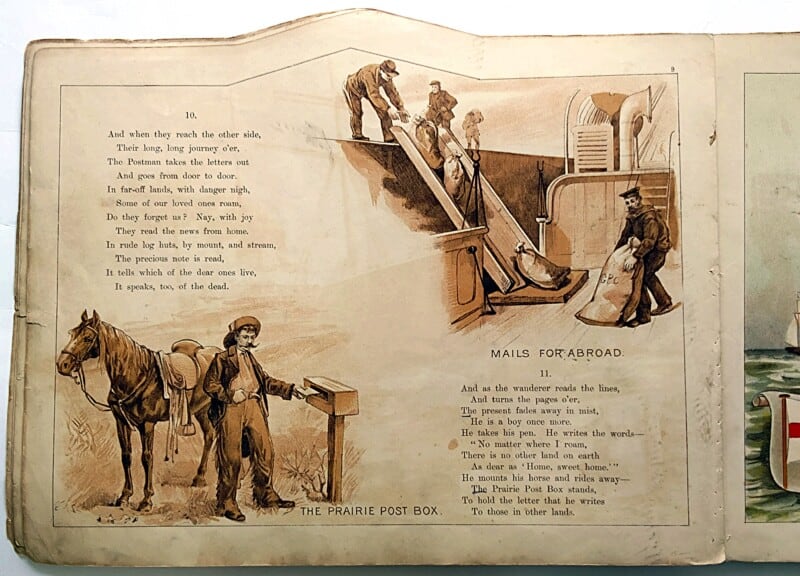 9
10.
And when they reach the other side,
Their long, long journey o'er,
The Postman takes the letters out
And goes from door to door.
In far-off lands, with danger nigh,
Some of our loved ones roam,
Do they forget us? Nay, with joy
They read the news from home.
In rude log huts, by mount, and stream,
The precious note is read,
It tells which of the dear ones live,
It speaks, too, of the dead.
GPO
MAILS FOR ABROAD.
11.
And as the wanderer reads the lines,
And turns the pages o'er,
The present fades away in mist,
He is a boy once more.
He takes his pen. He writes the words—
"No matter where I roam,
There is no other land on earth
As dear as 'Home, sweet home.'"
He mounts his horse and rides away—
The Prairie Post Box stands,
To hold the letter that he writes
To those in other lands.
THE PRAIRIE POST BOX.